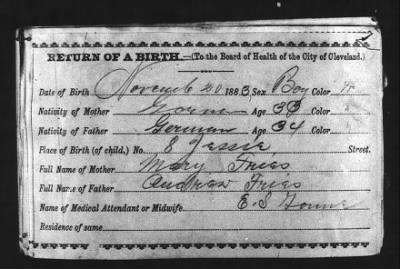 RETURN OF A BIRTH.—(To the Board of Health of the City of Cleveland.)
Date of Birth Novemb 20 1883 Sex Boy Color W
Nativity of Mother German Age 33 Color "
Nativity of Father German Age 34 Color "
Place of Birth (of child.) No. 8 Jessie Street.
Full Name of Mother Mary Fries
Full Name of Father Andrew Fries
Name of Medical Attendant or Midwife E. S
Residence of same